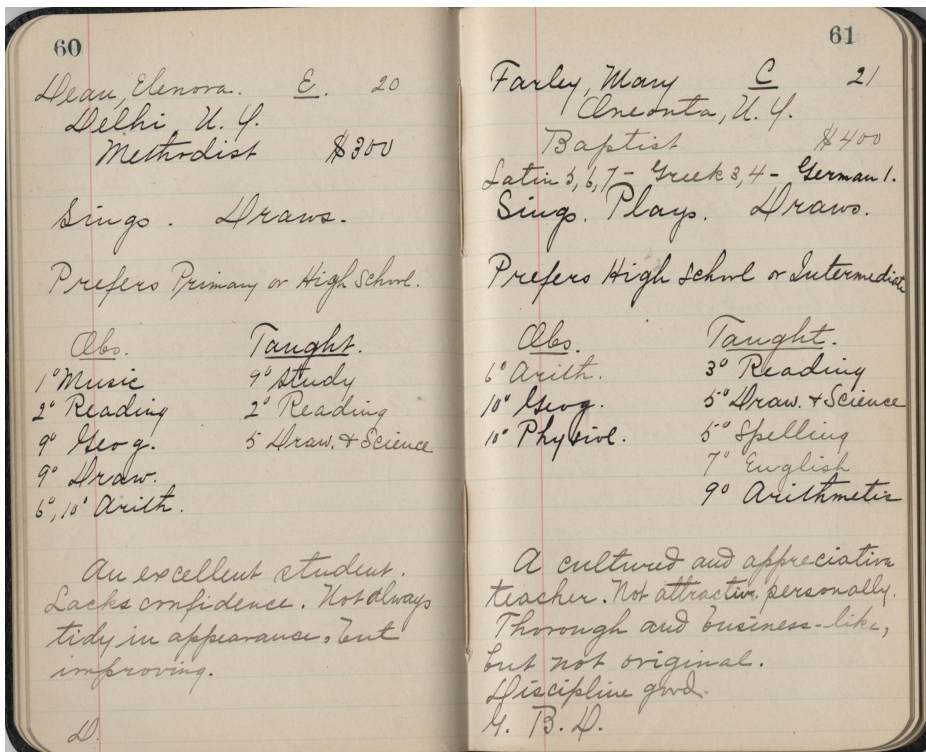 60
Dean, Elenora. E. 20
Delhi N. Y.
Methodist $300
Sings. Draws.
Prefers Primary or High School.
Obs. Taught.
1° Music 9° Study
2° Reading 2° Reading
9° Geog. 5 Draw. & Science
9° Draw.
6°, 10° Arith.
An excellent student.
Lacks confidence. Not always
tidy in appearance, but
improving.
D.
61
Farley, Mary C 21
Oneonta, N. Y.
Baptist $400
Latin 5, 6, 7 - Greek 3, 4 - German 1.
Sings. Plays. Draws.
Prefers High School or Intermediate
Obs. Taught.
6° Arith. 3° Reading
10° Geog. 5° Draw. & Science
10° Physiol. 5° Spelling
7° English
9° Arithmetic
A cultured and appreciative
teacher. Not attractive personally.
Thorough and business-like,
but not original.
Discipline good.
B. D.